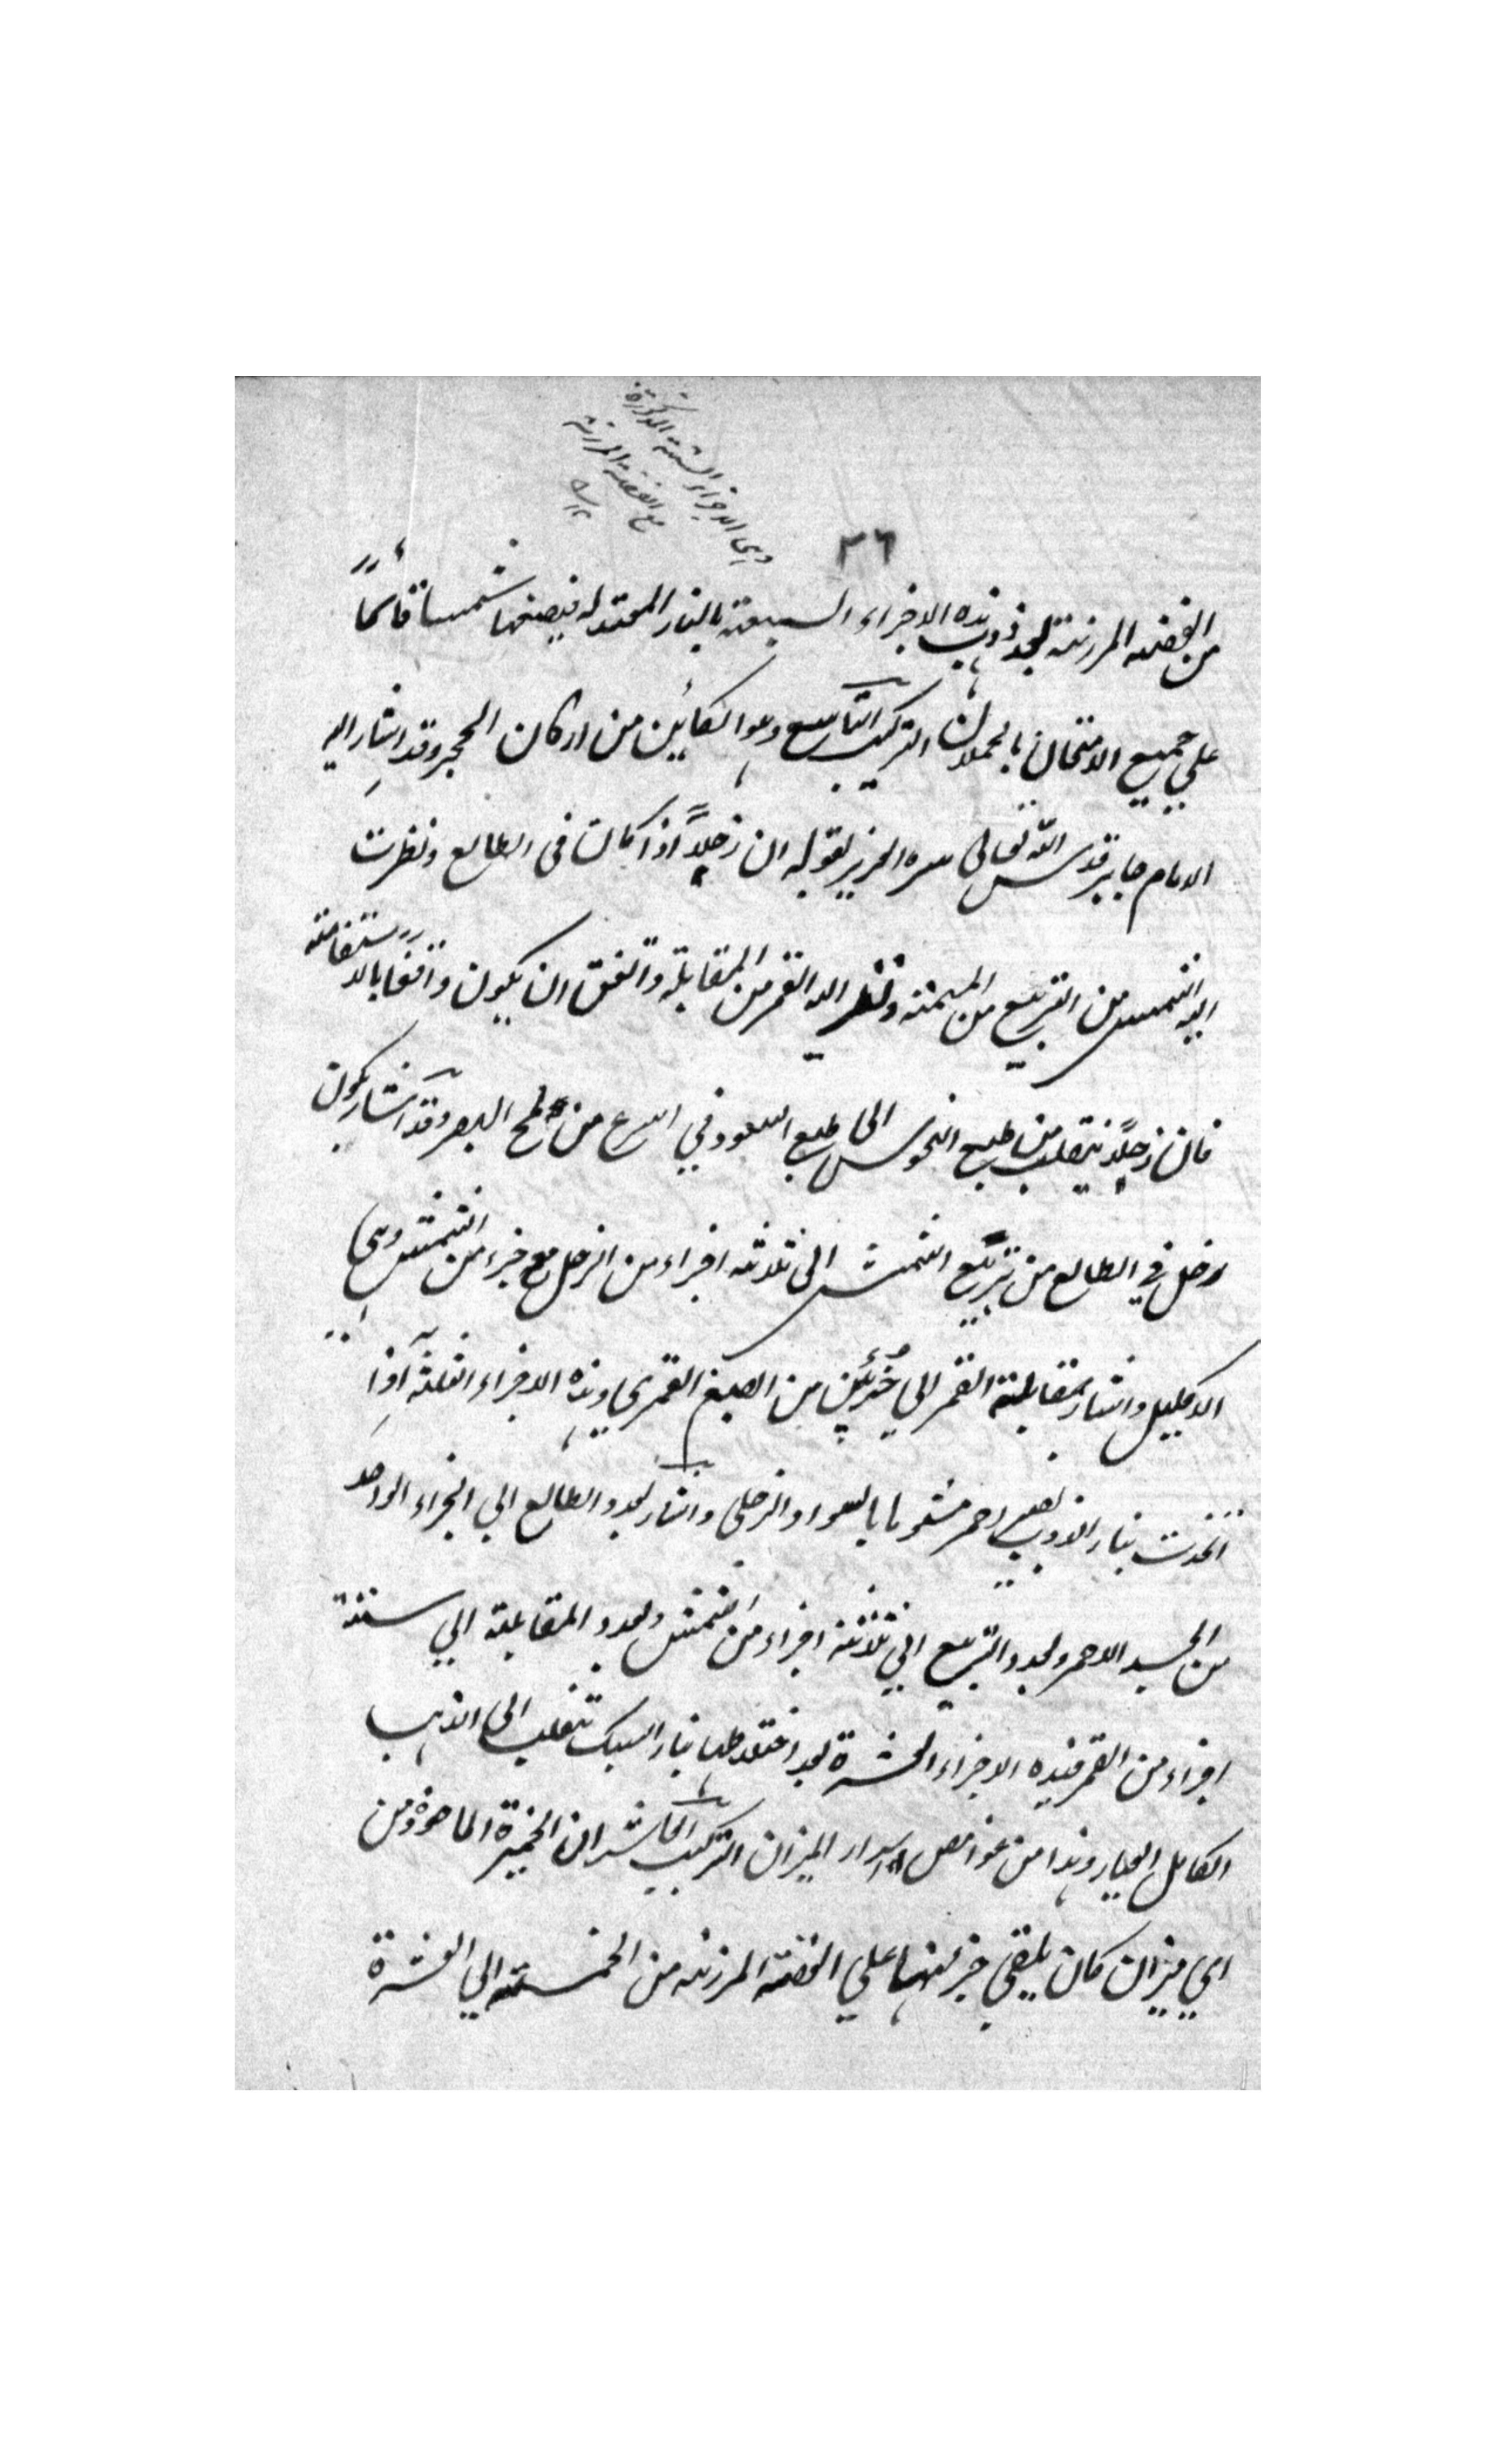 وهي الاجزاء الستة المذكورة
مع الفضة المرزنة
٣٦
من الفضة المرزنة بعد ذوب هذه الاجزاء السبعة بالنار المعتدلة فيصبغها شمسا قائما
علي جميع الامتحان بالحملان التركيب التاسع وهو الكائين من اركان الحجر وقد اشار اليه
الامام جابر قدس الله تعالى سره العزيز بقوله ان زحلاً اذا كان في الطالع ونظرت
اليه الشمس من التربيع من الميمنة ونظر اليه القمر من المقابلة واتفق ان يكون واقفا بالاستقامة
فان زحلاً ينقلب من طبع النحوس الى طبع السعود في اسرع من لمح البصر وقد اشار بكون
زحل في الطالع من تربيع الشمش الى ثلاثة اجزاء من الزحل مع جزء من الشمش وهي
الاكليل واشار بمقابلة القمر الي جُزئين من الصبغ القمري وهذه الاجزاء الثلثة اذا
اتخذت بنار الذوب تصير احمر مشوبا بالسواد الزحلي واشار بعدد الطالع الي الجزاء الواحد
من الجسد الاحمر وبعدد التربيع الي ثلاثة اجزاء من الشمش وبعدد المقابلة الي ستة
اجزاء من القمر فهذه الاجزاء العشرة بعد اختلاطها بنار السبك تنقلب الى الذهب
الكامل العيار وهذا من غوامض اسرار الميزان التركيب العاشر ان الخميرة الماخوذة من
اي ميزان كان يلقي جزء منها علي الفضة المرزنة من الخمسة الي العشرة